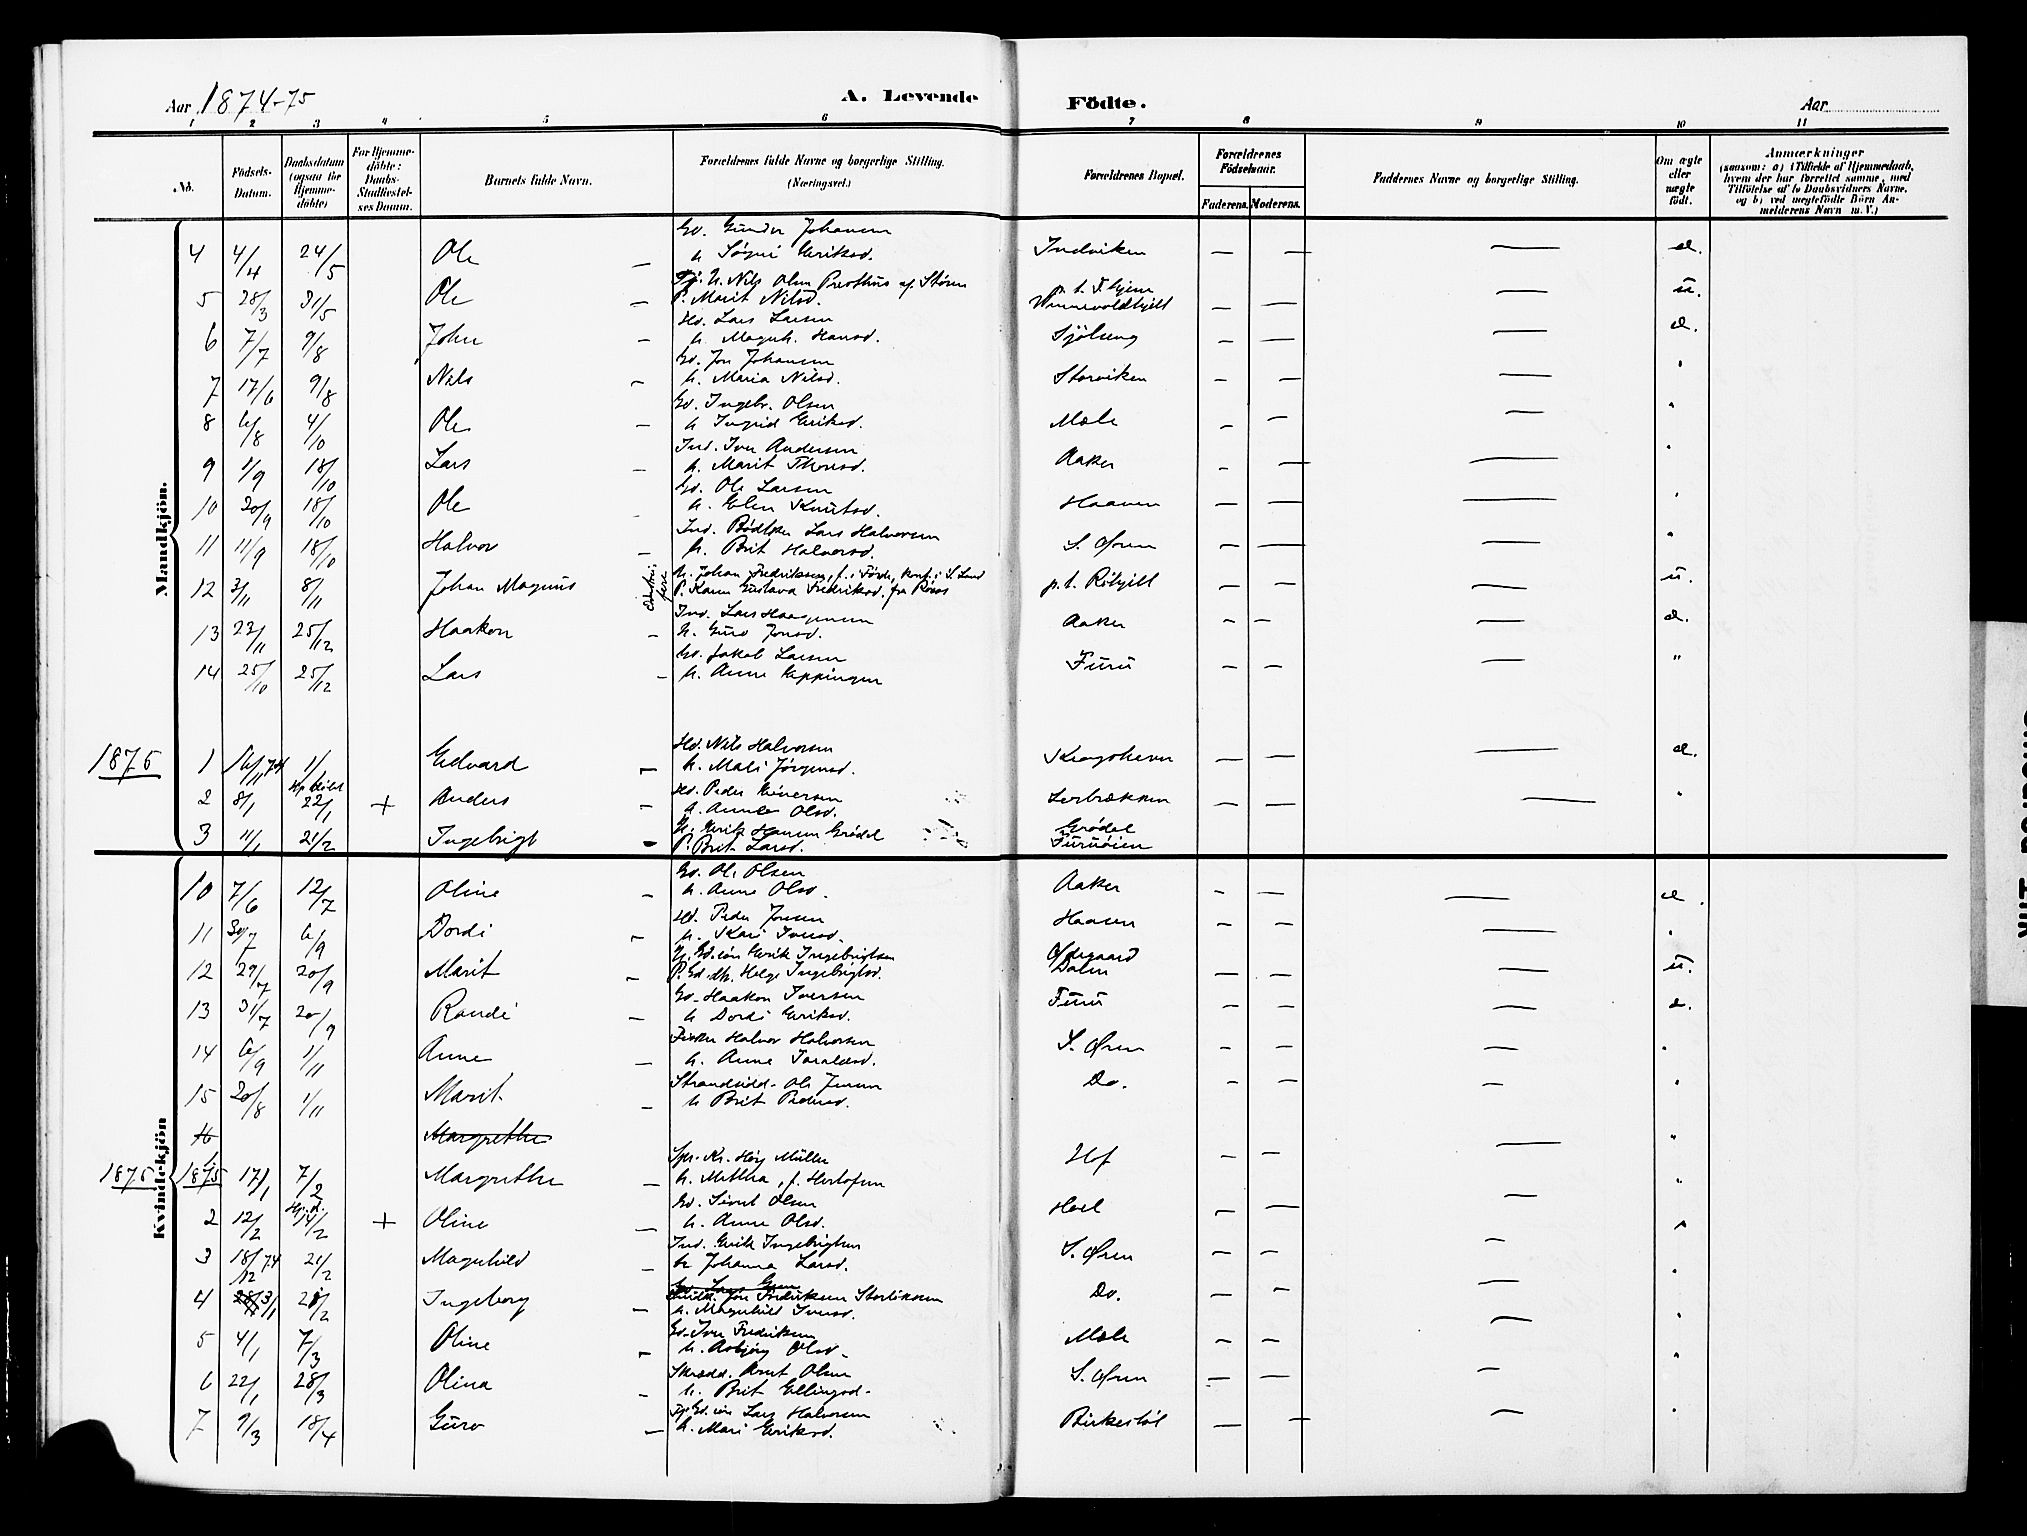 Aar 1874-75 A. Levende Födte. Aar
1 2 3 4 5 6 7 8 9 10 11
No. Födsels-Datum. Daabsdatum (ogsaa for Hjemme-döbte) For Hjemme-döbte: Daabs-Stadfæstel-ses Datum. Barnets fulde Navn. Forældrenes fulde Navne og borgerlige Stilling. (Næringsvei.) Forældrenes Bopæl. Forældrenes Födselsaar. Faderens. Moderens. Faddernes Navne og borgerlige Stilling. Om ægte eller uægte födt. Anmærkninger (saasom: a) i Tilfælde af Hjemmedaab, hvem der har forrettet samme, med Tilföielse af to Daabsvidners Navne, og b) ved uægtefödte Börn An-melderens Navn m. V.)
Mandkjön.
Gd. Gunder Johansen
4 4/4 24/5 Ole — h. Eriksd. Indviken — — — æ.
Nils Olsen af Støren p. t.
5 28/3 31/5 Ole — P. Marit Nilsd. — — — u.
Hd. Lars Larsen
6 7/7 9/8 John — h. Magnh. Hansd. Sjölseng — — — æ.
Gd. Jon Johansen
7 17/6 9/8 Nils — h. Maria Nilsd. Storviken — — — "
Gd. Ingebr. Olsen
8 6/8 4/10 Ole — h. Ingrid Eriksd. Mæle — — — "
Ind. Iver Andersen
9 1/9 18/10 Lars — h. Marit Thoresd. Aaker — — — "
Gd. Ole Larsen
10 20/9 18/10 Ole h. Elen Knutsd. Haaven — — — "
Ind. Bødker Lars Halvorsen
11 11/9 18/10 Halvor — h. Brit Halvorsd. S. Øren — — — "
U. Johan Fredriksen, f. i Förde, konf. i S. Land
12 3/11 8/11 Johan Magnus P. Karen Gustava Fredriksd. fra Röros p. t. — — — u.
Ind. Lars
13 22/11 25/12 Haakon — h. Guro Jonsd. Aaker — — — æ.
Gd. Jakob Larsen
14 25/10 25/12 Lars — h. Anne Furu — — — "
Hd. Nils Halvorsen
1875 1 16/11 74 1/1 Edvard — h. Mali Jörgensd. — — — æ.
Hd. Peder
2 8/1 22/1 + Anders — h. Olsd. — — — "
U. Erik Hansen Grödal Grödal
3 11/1 21/2 Ingebrigt — P. Brit Larsd. Furuöien
Kvindekjön
Gd. Ole Olsen
10 7/6 12/7 Oline — h. Anne Olsd. Aaker — — — æ.
Hd. Peder Jonsen
11 30/7 6/9 Dordi — h. Kari Iversd. Haaven — — — "
Erik Ingebrigtsen Ødegaard
12 29/7 20/9 Marit — P. Gd. dtr. Helge Ingebrigtsd. Dalen — — — u.
Gd. Haakon Iversen
13 31/7 20/9 Randi — h. Dordi Eriksd. Furu — — — æ.
Fisker Halvor Halvorsen
14 6/9 1/11 Anne — h. Anne S. Øren — — — "
Strandsidd. Ole Jensen
15 20/8 1/11 Marit — h. Brit Pedersd. Do. — — — "
16 Margrethe
Müller
1875 1 1875 17/1 7/2 Margrethe — h. Methea, f. Hof — — — "
Gd. Sivert Olsen
2 12/2 Hj. d. 14/2 + Oline — h. Anne Olsd. Hoel — — — "
Ind. Erik Ingebrigtsen
3 18/12 74 21/2 Magnhild — h. Johanna Larsd. S. Øren — — — "
Jon Fredriksen
4 3/1 28/2 Ingeborg — h. Magnhild Iversd. Do. — — — "
Gd. Iver Fredriksen
5 4/1 7/3 Oline — h. Asbjörg Olsd. Mæle — — — "
Skrædd. Arnt Olsen
6 22/1 28/3 Olina — h. Brit Ellingsd. S. Øren — — — "
Lars Halvorsen
7 9/3 18/4 Guro — h. Mari Eriksd. Birkestöl — — — "